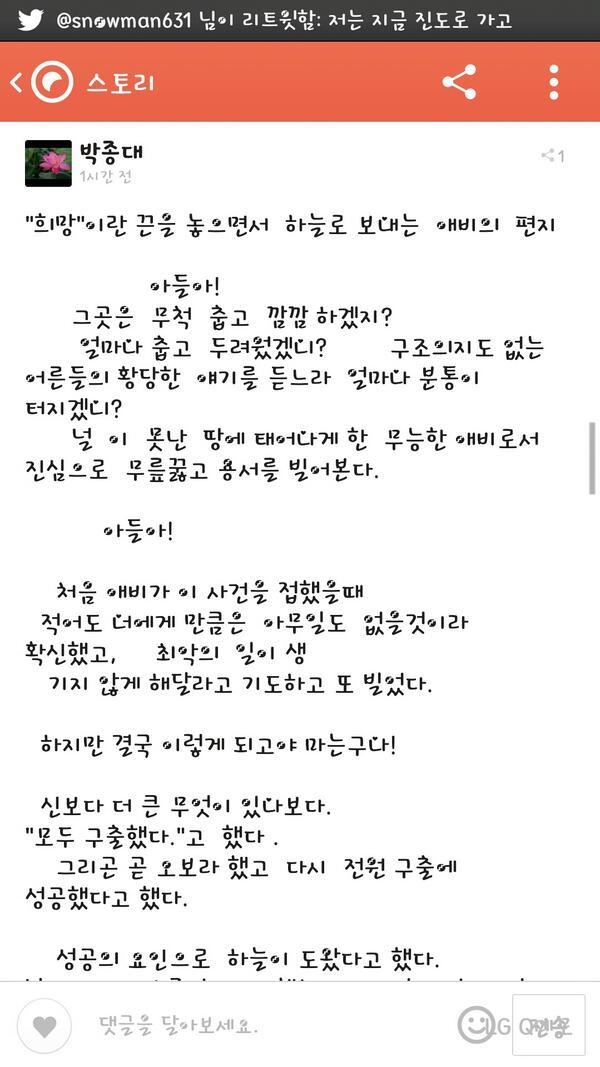 @snowman631 님이 리트윗함: 저는 지금 진도로 가고
스토리
박종대
1시간 전
1
"희망"이란 끈을 놓으면서 하늘로 보내는 애비의 편지
아들아!
그곳은 무척 춥고 깜깜 하겠지?
얼마나 춥고 두려웠겠니? 구조의지도 없는
어른들의 황당한 얘기를 듣느라 얼마나 분통이
터지겠니?
널 이 못난 땅에 태어나게 한 무능한 애비로서
진심으로 무릎꿇고 용서를 빌어본다.
아들아!
처음 애비가 이 사건을 접했을때
적어도 너에게 만큼은 아무일도 없을것이라
확신했고, 최악의 일이 생
기지 않게 해달라고 기도하고 또 빌었다.
하지만 결국 이렇게 되고야 마는구나!
신보다 더 큰 무엇이 있나보다.
"모두 구출했다."고 했다 .
그리곤 곧 오보라 했고 다시 전원 구출에
성공했다고 했다.
성공의 요인으로 하늘이 도왔다고 했다.
댓글을 달아보세요.
전송
LG Q